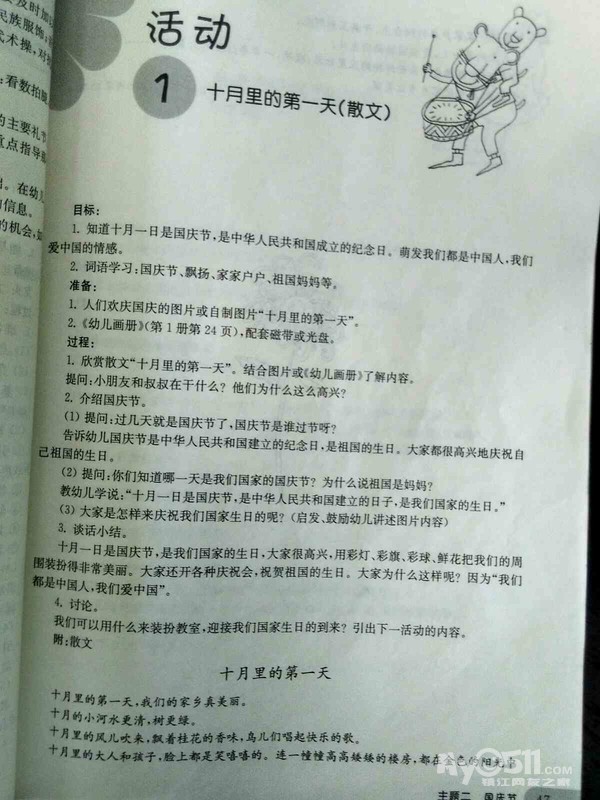 及时加
民族服饰
武术操,对
:看数拍
的主要礼节
重点指导
出。在幼儿
的信息。
的机会,如
活动
1
十月里的第一天(散文)
目标:
1. 知道十月一日是国庆节,是中华人民共和国成立的纪念日。萌发我们都是中国人,我们
爱中国的情感。
2. 词语学习:国庆节、飘扬、家家户户、祖国妈妈等。
准备:
1. 人们欢庆国庆的图片或自制图片“十月里的第一天”。
2.《幼儿画册》(第1册第24页),配套磁带或光盘。
过程:
1. 欣赏散文“十月里的第一天”。结合图片或《幼儿画册》了解内容。
提问:小朋友和叔叔在干什么?他们为什么这么高兴?
2. 介绍国庆节。
(1) 提问:过几天就是国庆节了,国庆节是谁过节呀?
告诉幼儿国庆节是中华人民共和国建立的纪念日,是祖国的生日。大家都很高兴地庆祝自
己祖国的生日。
(2) 提问:你们知道哪一天是我们国家的国庆节?为什么说祖国是妈妈?
教幼儿学说:“十月一日是国庆节,是中华人民共和国建立的日子,是我们国家的生日。”
(3) 大家是怎样来庆祝我们国家生日的呢?(启发、鼓励幼儿讲述图片内容)
3. 谈话小结。
十月一日是国庆节,是我们国家的生日,大家很高兴,用彩灯、彩旗、彩球、鲜花把我们的周
围装扮得非常美丽。大家还开各种庆祝会,祝贺祖国的生日。大家为什么这样呢?因为“我们
都是中国人,我们爱中国”。
4. 讨论。
我们可以用什么来装扮教室,迎接我们国家生日的到来?引出下一活动的内容。
附:散文
十月里的第一天
十月里的第一天,我们的家乡真美丽。
十月的小河水更清,树更绿。
十月里的风儿吹来,飘着桂花的香味,鸟儿们唱起快乐的歌。
十月里的大人和孩子,脸上都是笑嘻嘻的。连一幢幢高高矮矮的楼房,都在金色的阳光里
主题二 国庆节 17
My0511.com
镇江网友之家